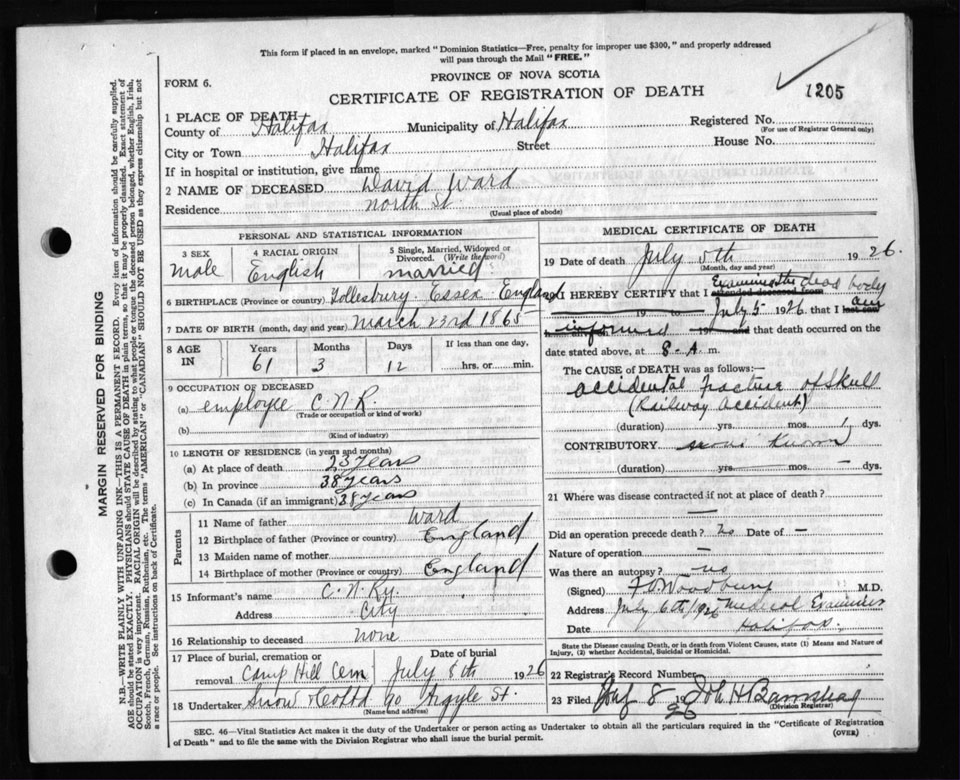 This form if placed in an envelope, marked "Dominion Statistics—Free, penalty for improper use $300," and properly addressed
will pass through the Mail "FREE."
FORM 6.
PROVINCE OF NOVA SCOTIA
CERTIFICATE OF REGISTRATION OF DEATH
1205
1 PLACE OF DEATH
County of Halifax Municipality of Halifax Registered No.
(For use of Registrar General only)
City or Town Halifax Street House No.
If in hospital or institution, give name
2 NAME OF DECEASED David Ward
Residence North St
(Usual place of abode)
PERSONAL AND STATISTICAL INFORMATION
3 SEX Male
4 RACIAL ORIGIN English
5 Single, Married, Widowed or Divorced. (Write the word) married
6 BIRTHPLACE (Province or country) Tollesbury. Essex. England
7 DATE OF BIRTH (month, day and year) March 23rd 1865
8 AGE IN Years 61 Months 3 Days 12 If less than one day, hrs. or min.
9 OCCUPATION OF DECEASED
(a) employee C.N.R.
(Trade or occupation or kind of work)
(b)
(Kind of industry)
10 LENGTH OF RESIDENCE (in years and months)
(a) At place of death 23 years
(b) In province 38 years
(c) In Canada (if an immigrant) 38 years
Parents
11 Name of father Ward
12 Birthplace of father (Province or country) England
13 Maiden name of mother
14 Birthplace of mother (Province or country) England
15 Informant's name C.N.Ry.
Address City
16 Relationship to deceased none
17 Place of burial, cremation or removal Camp Hill Cem
Date of burial July 8th 1926
18 Undertaker Snow & Co Ltd 90 Argyle St.
(Name and address)
MEDICAL CERTIFICATE OF DEATH
19 Date of death July 5th 1926.
(Month, day and year)
20 I HEREBY CERTIFY that I attended deceased from Examined the dead body
19 to July 5 1926 that I last saw am
h informed 19 and that death occurred on the
date stated above, at 8- A. m.
The CAUSE OF DEATH was as follows:—
accidental fracture of Skull
(Railway Accident)
(duration) yrs. mos. 1 dys.
CONTRIBUTORY none known
(duration) yrs. mos. — dys.
21 Where was disease contracted if not at place of death?
—
Did an operation precede death? no Date of —
Nature of operation —
Was there an autopsy? no
(Signed) F.V. Woodbury M.D.
Address July 6th/1926 Medical Examiner
Date Halifax.
State the Disease causing Death, or in death from Violent Causes, state (1) Means and Nature of
Injury, (2) whether Accidental, Suicidal or Homicidal.
22 Registrars Record Number
23 Filed 8 1926
(Division Registrar)
SEC. 46—Vital Statistics Act makes it the duty of the Undertaker or person acting as Undertaker to obtain all the particulars required in the "Certificate of Registration
of Death" and to file the same with the Division Registrar who shall issue the burial permit.
(OVER)
MARGIN RESERVED FOR BINDING
N.B.—WRITE PLAINLY WITH UNFADING INK—THIS IS A PERMANENT RECORD. Every item of information should be carefully supplied.
AGE should be stated EXACTLY. PHYSICIANS should STATE CAUSE OF DEATH in plain terms, so that it may be properly classified. Exact statement of
OCCUPATION is very important. RACIAL ORIGIN will be described by stating to what people or tongue the deceased person belonged, whether English, Irish,
Scotch, French, German, Russian, Ruthenian, etc. The terms "AMERICAN" or "CANADIAN" SHOULD NOT BE USED as they express citizenship but not
a race or people. See instructions on back of Certificate.